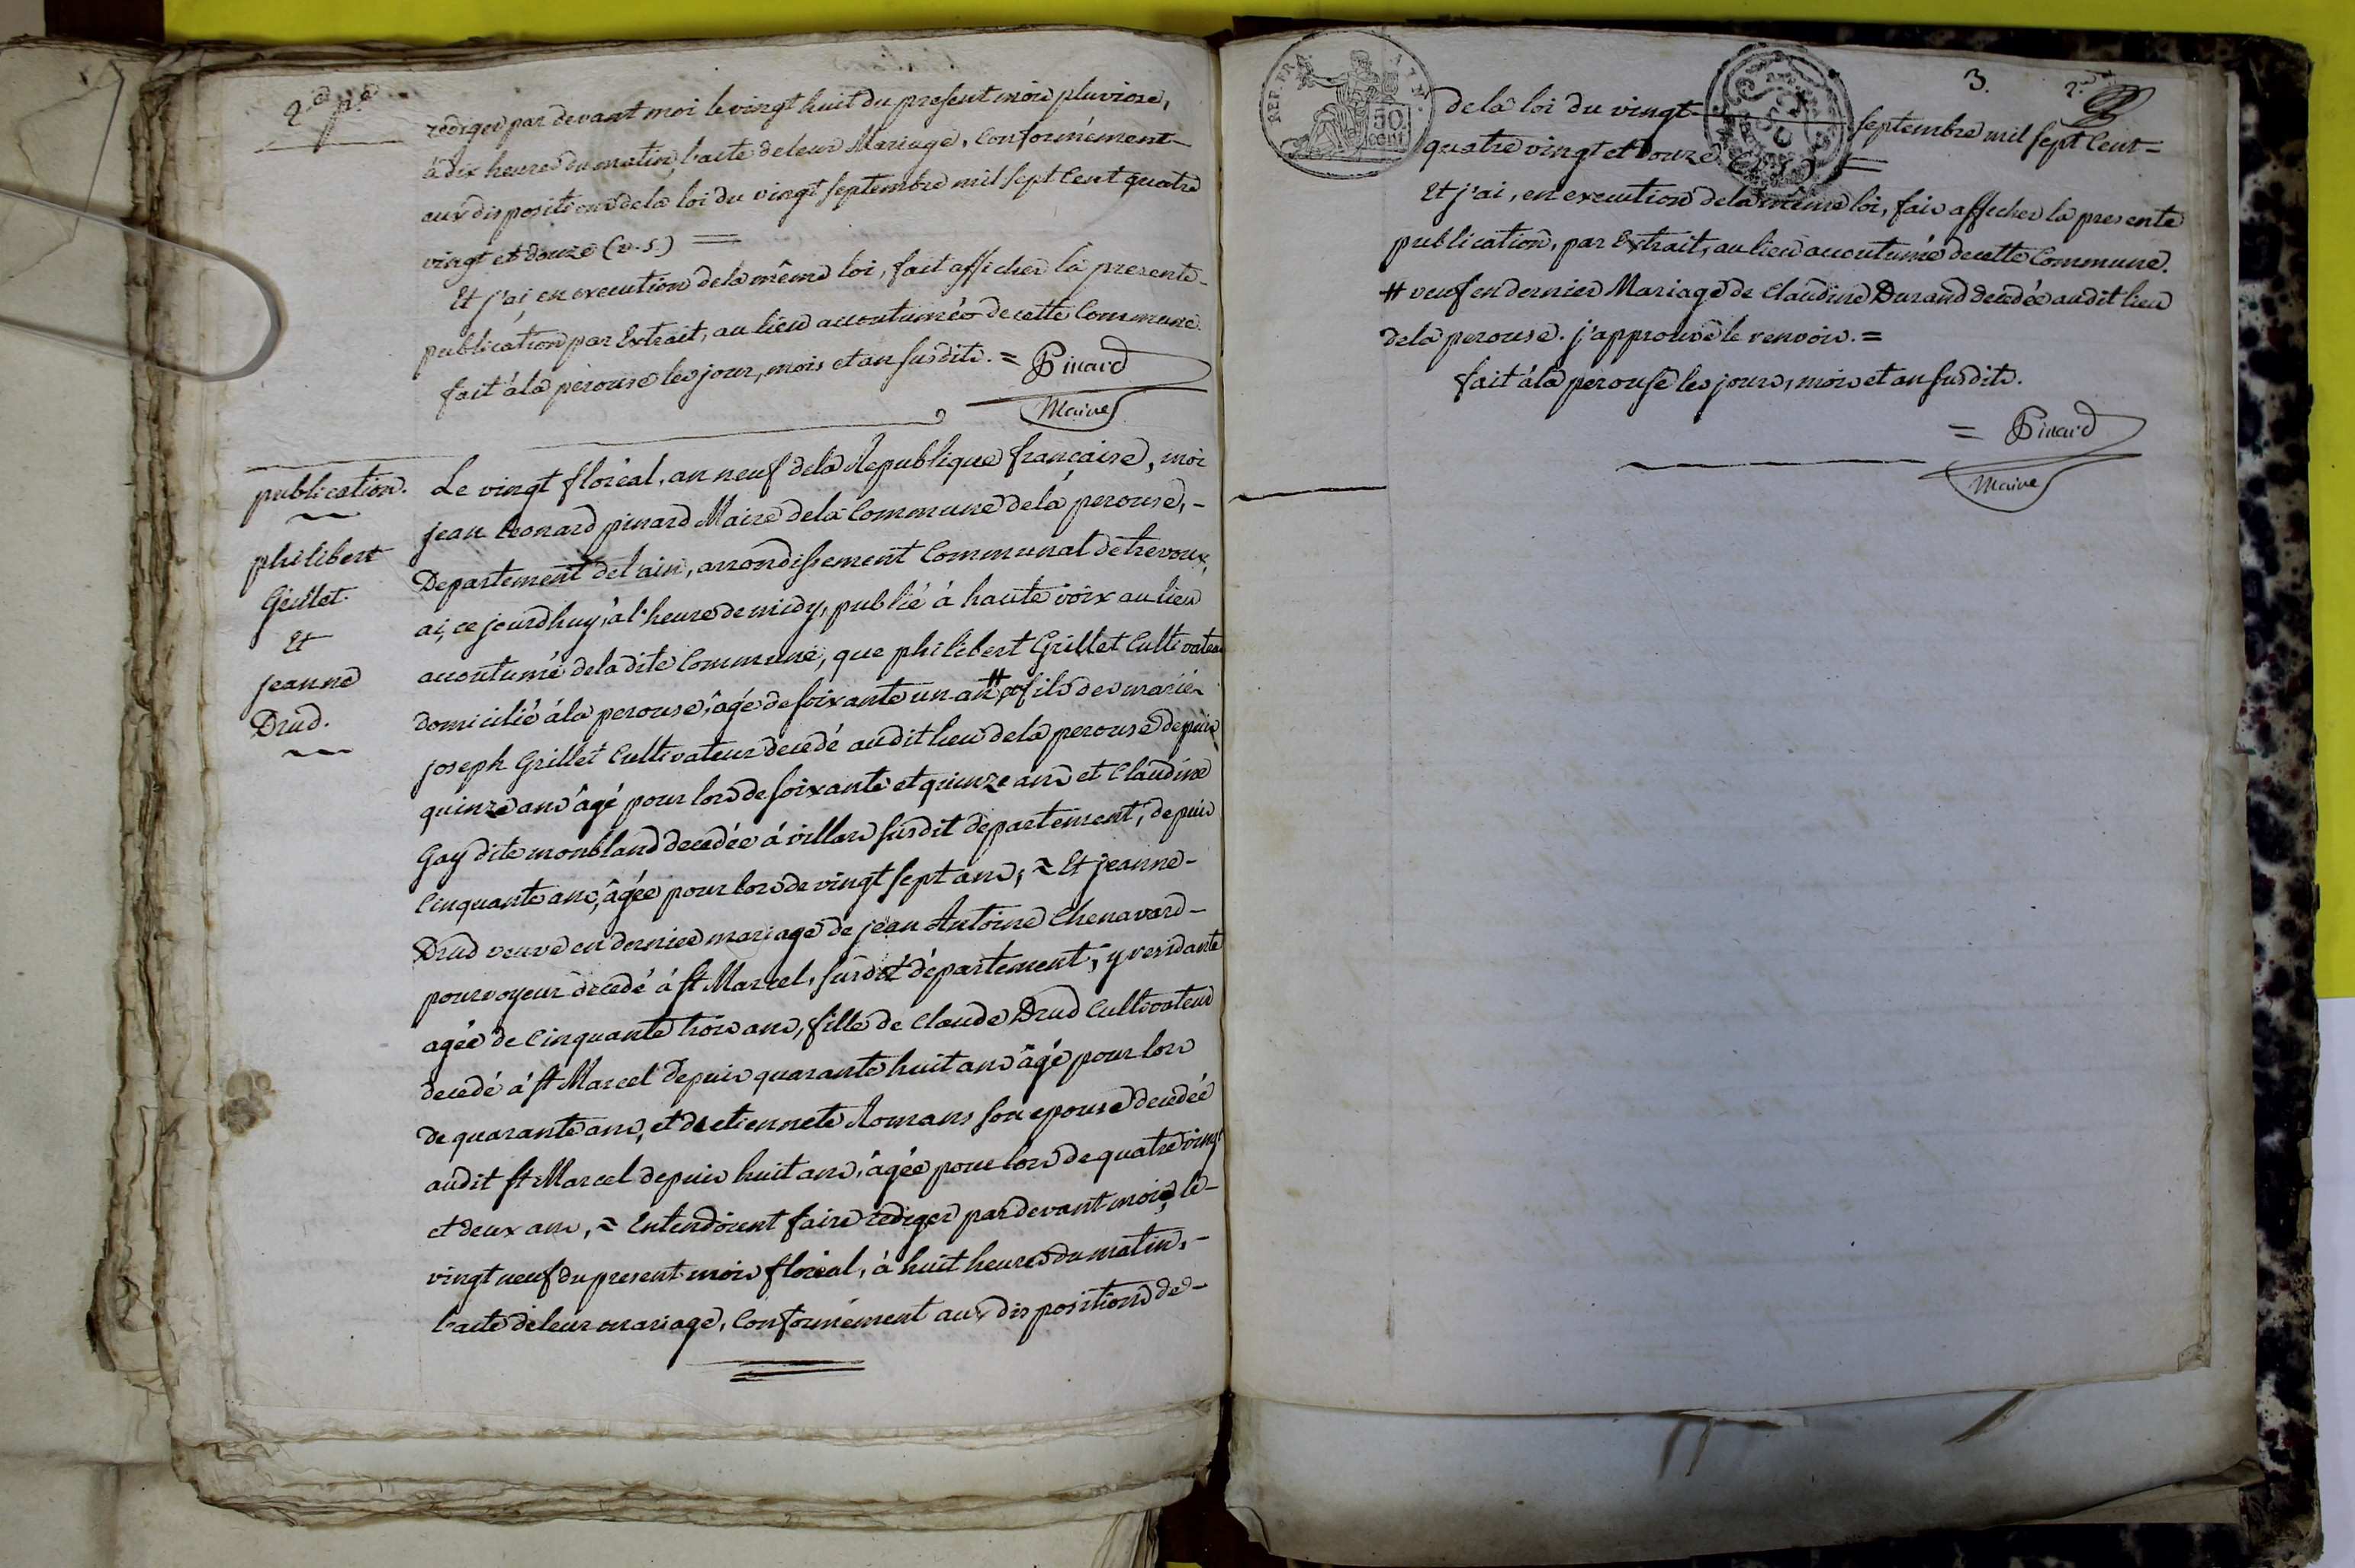 2.d p.e
rediger par devant moi le vingt huit du present mois pluviose,
à dix heures du matin, l'acte de leur Mariage, Conformément
aux dispositions de la loi du vingt septembre mil sept Cent quatre
vingt et douze (v.s.) =
Et j'ai, en execution de la même loi, fait afficher la presente
publication par Extrait, au lieu accoutumée de cette Commune.
fait à la pérouse les jour, mois et an susdits. = Pinard
Maire
publication.
philibert
Grillet
Et
jeanne
Drud.
Le vingt floréal, an neuf de la Republique française, moi
jean Leonard pinard Maire de la Commune de la perouse, -
Departement de l'ain, arrondissement Communal de trevoux,
ai, ce jourdhuy, à l'heure de midy, publié à haute voix au lieu
accoutumé de la dite Commune, que philibert Grillet Cultivateur
domicilié à la perouse, âgé de soixante un an # fils des mariés
joseph Grillet Cultivateur decedé audit lieu de la perouse depuis
quinze ans âgé pour lors de soixante et quinze ans et Claudine
Gay dite monbland decedée à villars susdit département, depuis
Cinquante ans, âgée pour lors de vingt sept ans, = Et jeanne -
Drud veuve en dernier mariage de jean Antoine Chenavard -
pourvoyeur decedé à St Marcel, susdit département, y residante
agée de Cinquante trois ans, fille de Claude Drud Cultivateur
decedé à St Marcel depuis quarante huit ans âgé pour lors
de quarante ans, et de etiennete Romans son epouse decedée
audit St Marcel depuis huit ans, âgée pour lors de quatre vingt
et deux ans, = Entendoient faire rediger par devant moi, le -
vingt neuf du present mois floréal, à huit heures du matin, -
l'acte de leur mariage, Conformément aux dispositions de -
REP. FRA
50
cent
3.
2.d
de la loi du vingt septembre mil sept Cent =
quatre vingt et douze (v.s.) =
Et j'ai, en execution de la même loi, fais afficher la presente
publication, par Extrait, au lieu accoutumé de cette Commune.
# veuf en dernier Mariage de Claudine Durand decedée audit lieu
de la perouse. j'approuve le renvoi. =
fait à la perouse les jours, mois et an susdits.
= Pinard
Maire